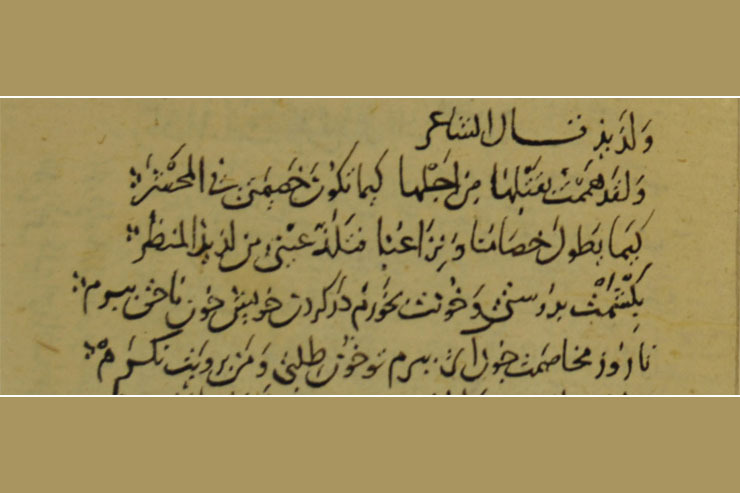 ولذيذ قال الشاعر
ولقد هممت بقتلها من اجلها كيما تكون خصيمتي في المحشر
كيما يطول خصامنا ونزاعنا فتلذ عيني من لذيذ المنظر
بكشمت بدوستي و خونت بخورم در كردن خويش خون ناحق ببرم
تا روز مخاصمت جون ائى ببرم تو خون طلبي و من برويت نكرم